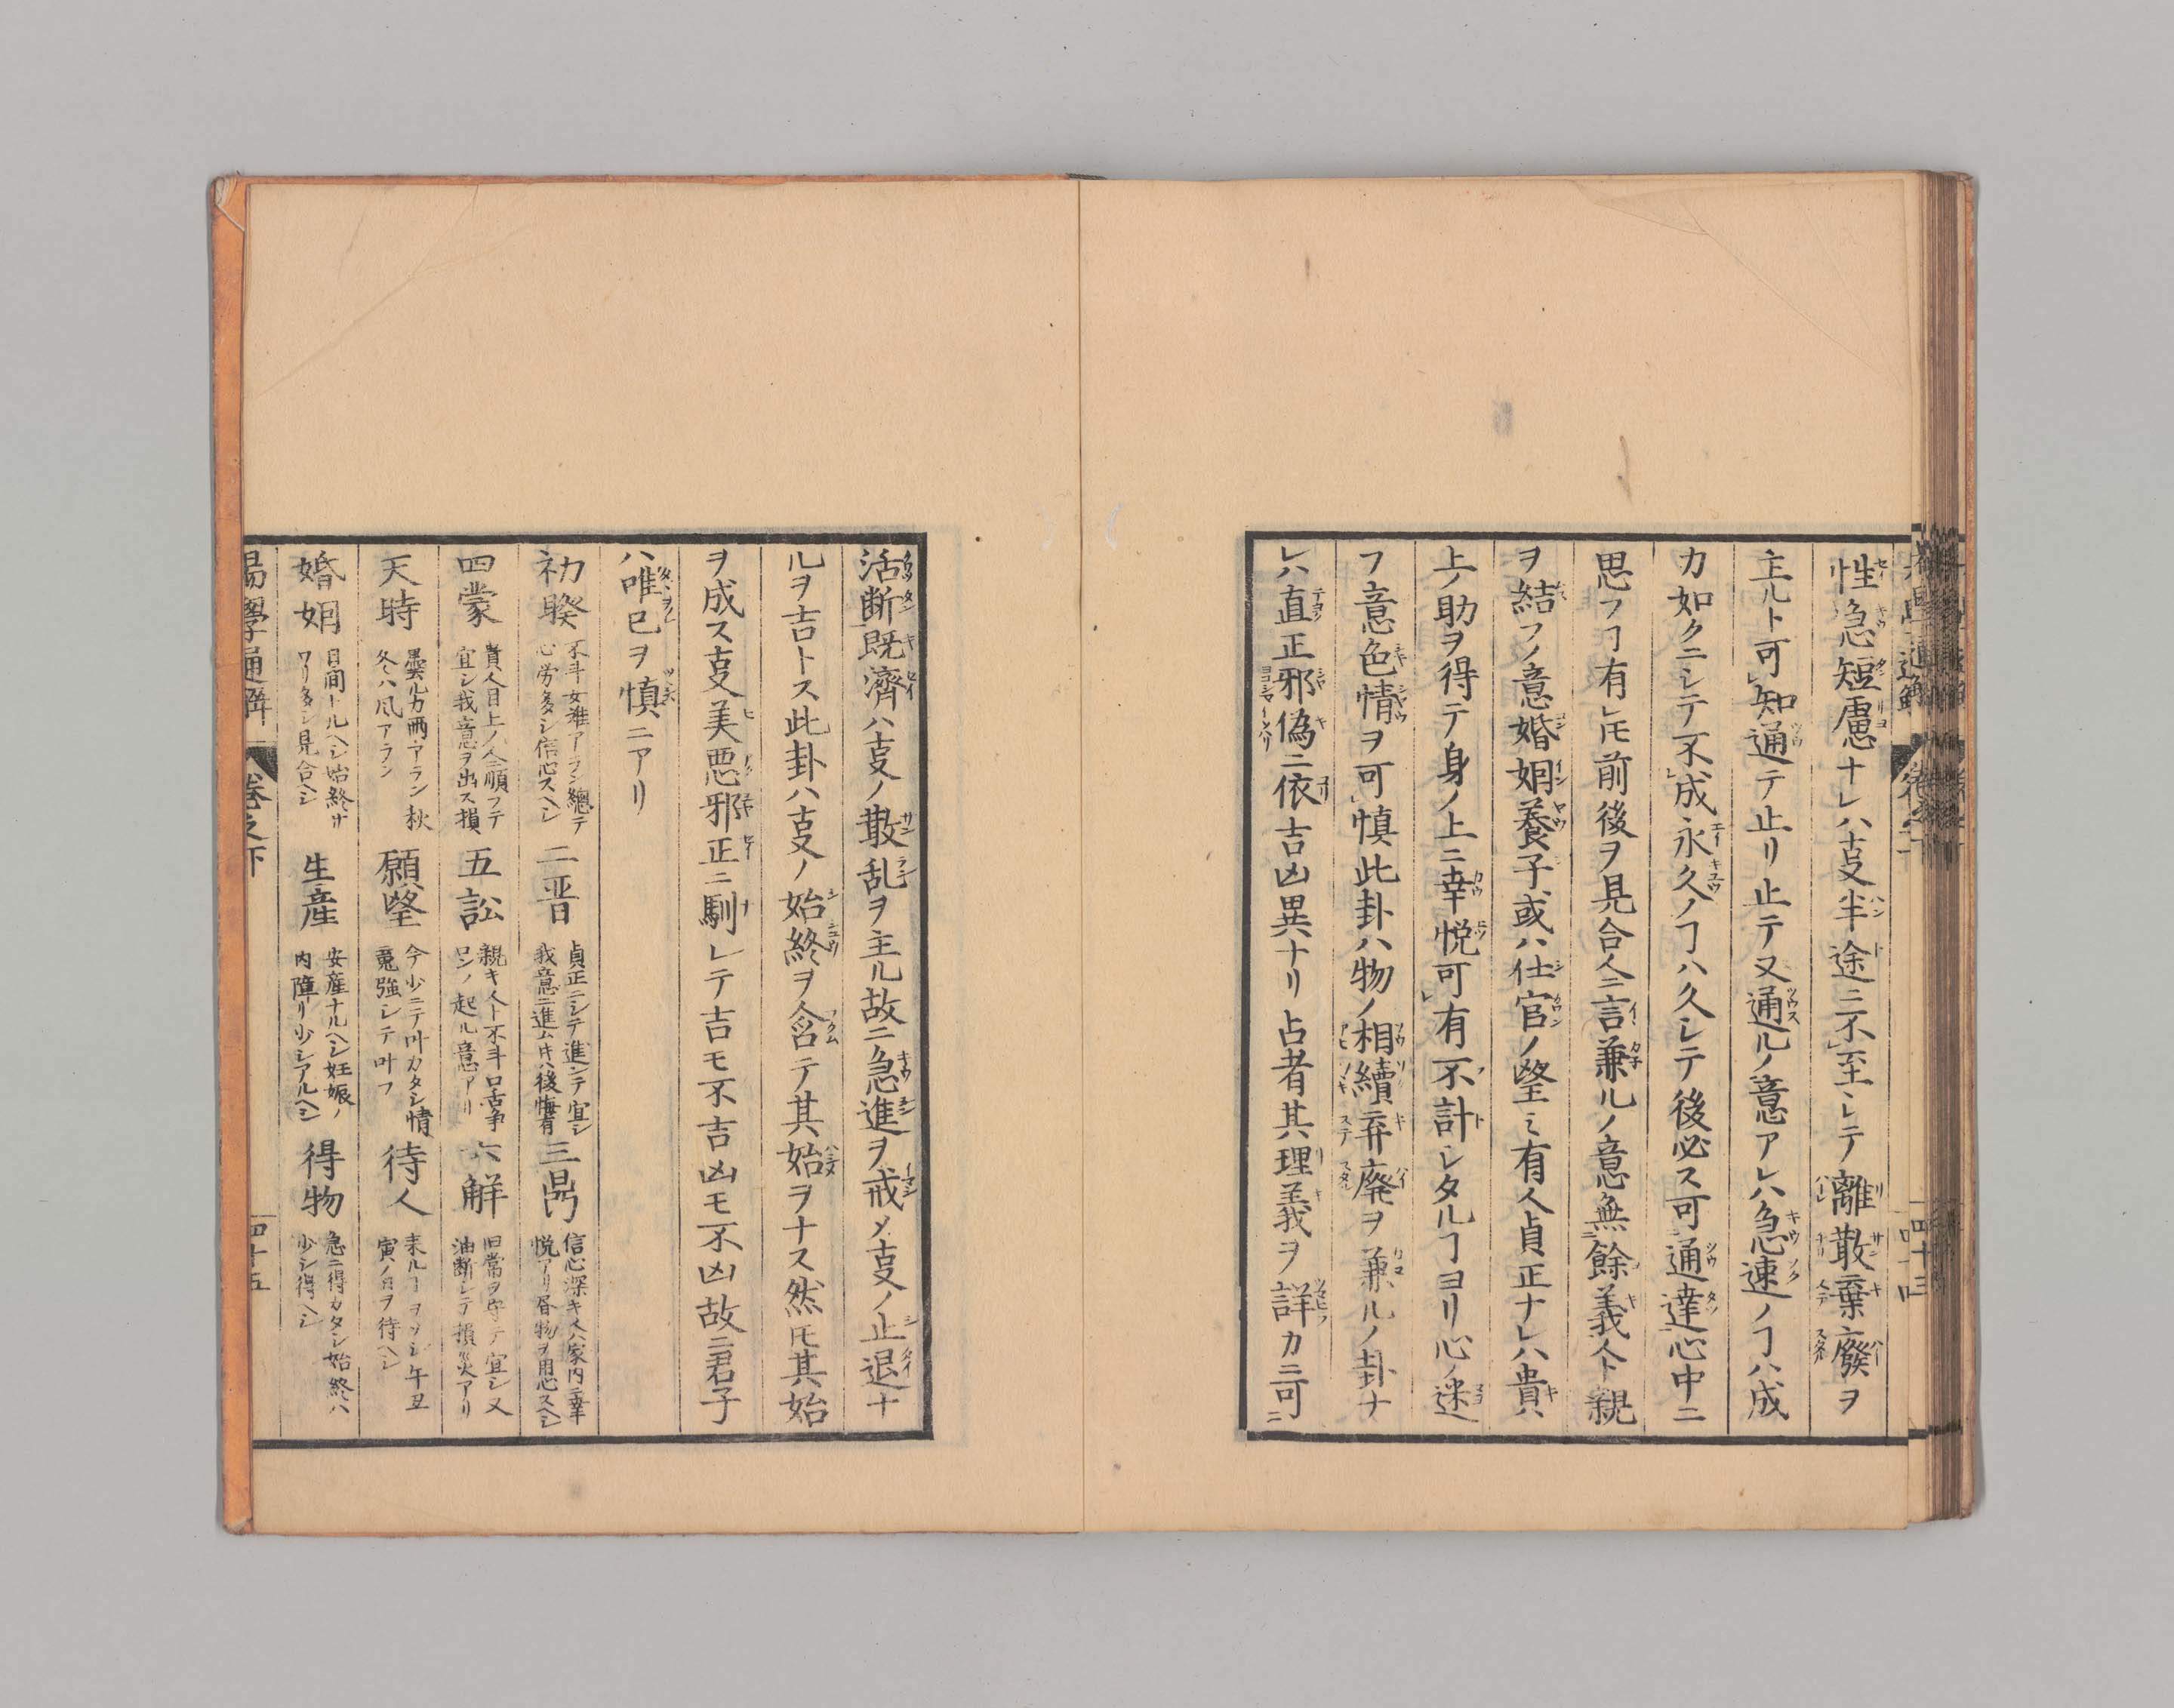 性急短慮ナレハ叓半途ニ不至シテ離散棄廢ヲ
主ルト可知通テ止リ止テ又通ルノ意アレハ急速ノヿハ成
カ如クニシテ不成永久ノヿハ久シテ後必ス可通達心中ニ
思フヿ有𪜈前後ヲ見合人ニ言兼ルノ意無餘義人ト親
ヲ結フノ意婚姻養子或ハ仕官ノ望ミ有人貞正ナレハ貴
上ノ助ヲ得テ身ノ上ニ幸悦可有不計シタルヿヨリ心ノ迷
フ意色情ヲ可慎此卦ハ物ノ相續弃廃ヲ兼ルノ卦ナ
レハ直正邪偽ニ依吉凶異ナリ占者其理義ヲ詳カニ可
活断既濟ハ叓ノ散乱ヲ主ル故ニ急進ヲ戒メ叓ノ止退ナ
ルヲ吉トス此卦ハ叓ノ始終ヲ含テ其始ヲナス然𪜈其始
ヲ成ス叓美悪邪正ニ馴レテ吉モ不吉凶モ不凶故ニ君子
ハ唯已ヲ慎ニアリ
初睽 不斗女難アラン總テ
心労多シ信心スヘシ
二晋 貞正ニシテ進ンテ宜シ
我意ニ進ム𪜈ハ後悔有
三鼎 信心深キ人ハ家内ニ幸
悦アリ届物ヲ用心スヘシ
四蒙 貴人目上ノ人ニ順フテ
宜シ我意ヲ出ス損
五訟 親キ人ト不斗口舌争
ロンノ起ル意アリ
六解 旧常ヲ守テ宜シ又
油断シテ損災アリ
天時 曇ルカ雨アラン秋
冬ハ風アラン
願望 今少ニテ叶カタシ情
竟強シテ叶フ
待人 来ルヿヲソシ午丑
寅ノ日ヲ待ヘシ
婚姻 日間トルヘシ始終サ
ワリ多シ見合ヘシ
生産 安産ナルヘシ妊娠ノ
内障リ少シアルヘシ
得物 急ニ得カタシ始終ハ
少シ得ヘシ
易學通解 卷之下 四十五